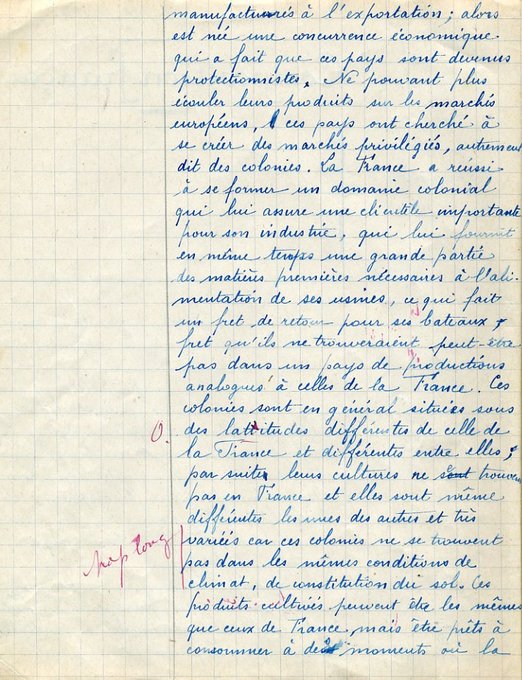 manufacturés à l'exportation ; alors
est née une concurrence économique
qui a fait que ces pays sont devenus
protectionnistes. Ne pouvant plus
écouler leurs produits sur les marchés
européens, ces pays ont cherché à
se créer des marchés privilégiés, autrement
dit des colonies. La France a réussi
à se former un domaine colonial
qui lui assure une clientèle importante
pour son industrie, qui lui fournit
en même temps une grande partie
des matières premières nécessaires à l'ali-
mentation de ses usines, ce qui fait
un fret de retour pour ses bateaux,
fret qu'ils ne trouveraient peut-être
pas dans un pays de productions
analogues à celles de la France. Ces
colonies sont en général situées sous
O. des lattitudes différentes de celle de
la France et différentes entre elles ;
par suite leurs cultures ne sont trouvent
pas en France et elles sont même
différentes les unes des autres et très
trop long variées car ces colonies ne se trouvent
pas dans les mêmes conditions de
climat, de constitution du sol. Ces
produits cultivés peuvent être les mêmes
que ceux de France mais être prêts à
consommer à des moments où la